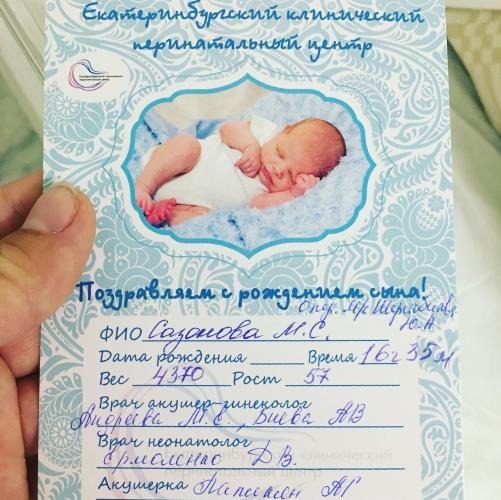 Екатеринбургский клинический
перинатальный центр
Поздравляем с рождением сына!
ФИО Сазонова М.С.
Дата рождения Время 16ч 35м
Вес 4370 Рост 57
Врач акушер-гинеколог
Андреева М.Е., А В
Врач неонатолог
Ермоленко Д В.
Акушерка А Г